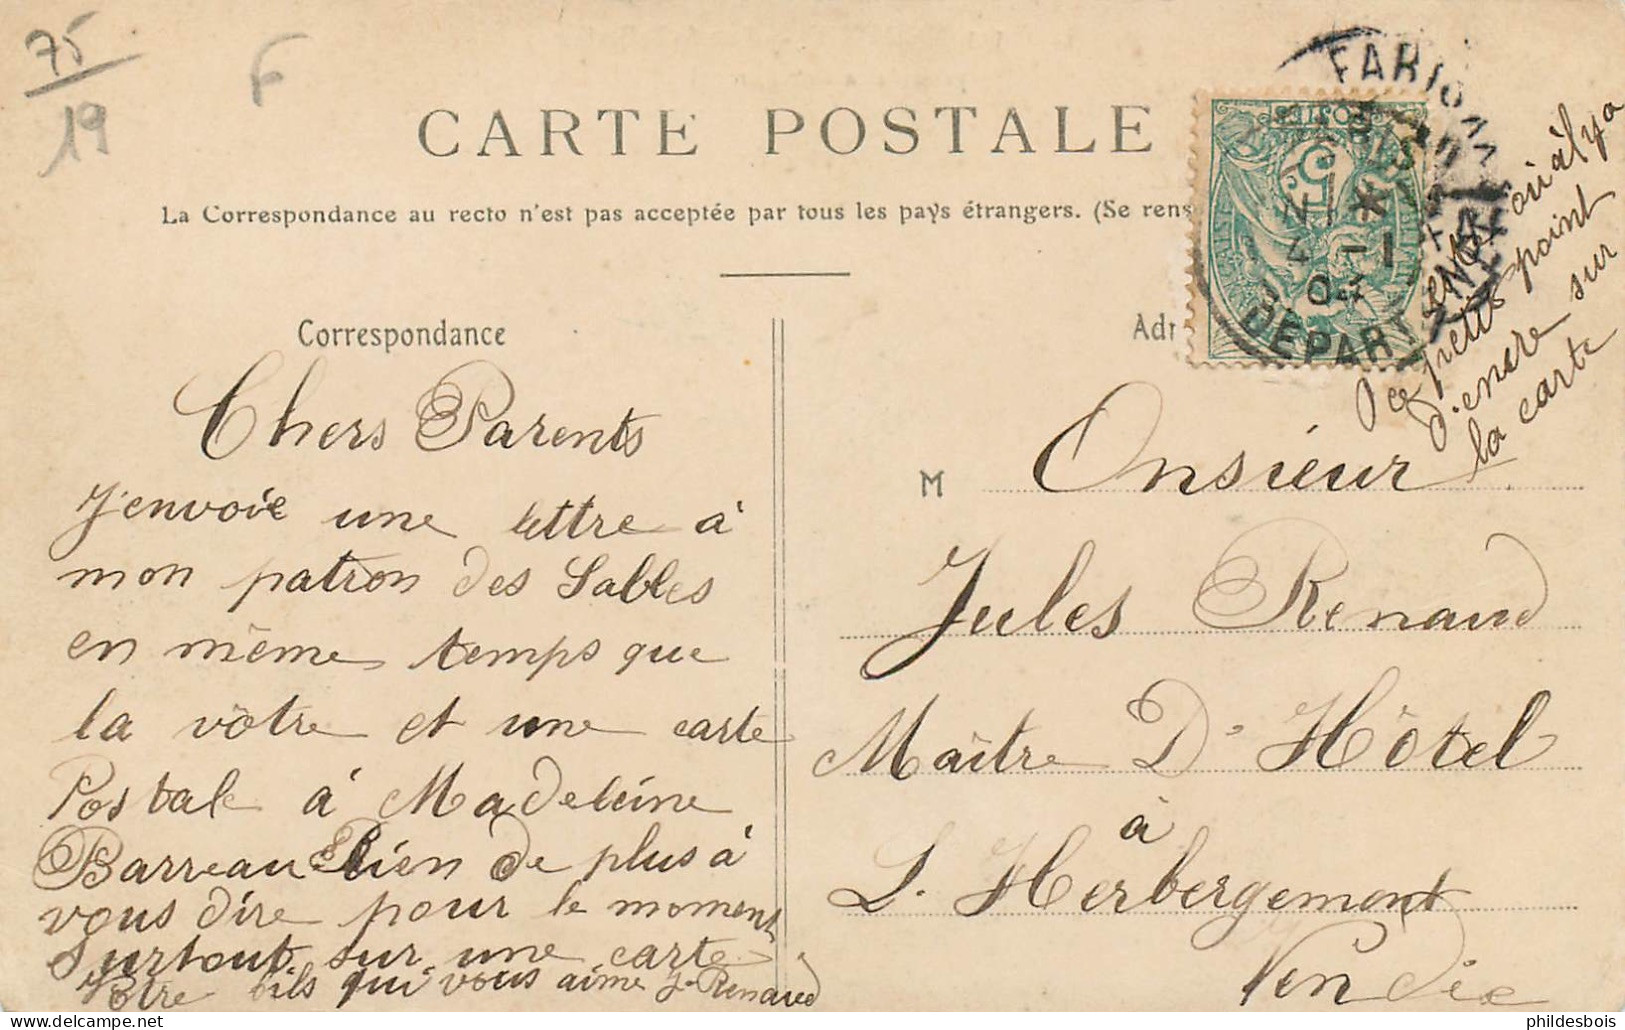 75
19
F
CARTE POSTALE
La Correspondance au recto n'est pas acceptée par tous les pays étrangers. (Se rens
POSTES
5
4 -1
04
DEPART
Correspondance
Adr
Chers Parents
J'envoie une lettre à
mon patron des Sables
en même temps que
la vôtre et une carte
Postale à Madeleine
Barreau Rien de plus à
vous dire pour le moment
surtout sur une carte
Votre fils qui vous aime J. Renaud
M Onsieur
Jules Renaud
Maître D'Hôtel
à
L. Herbergement
Vendée
où il y a
ce petit point
d'encre sur
la carte
phildesbois